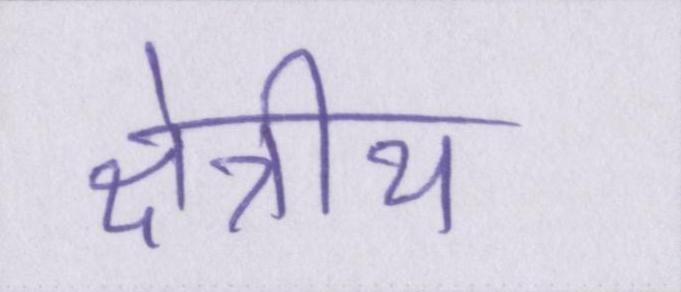 क्षेत्रीय